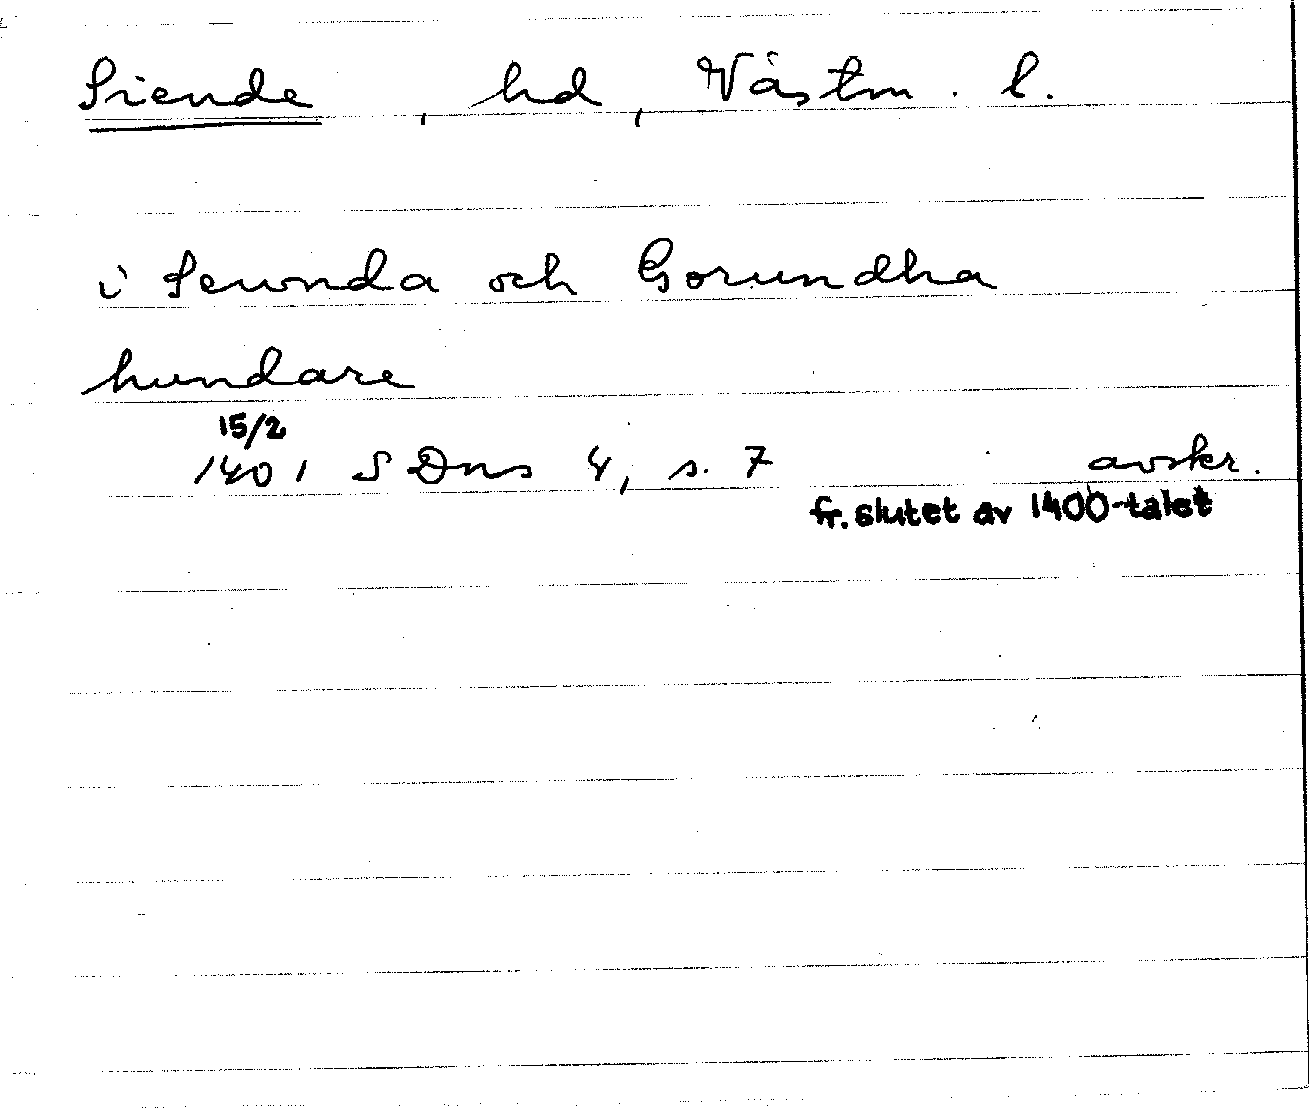 Siende, hd, Västm. l.
i Seunda och Gorundha
hundare
15/2
1401 SDns 4, s. 7 avskr.
fr. slutet av 1400-talet